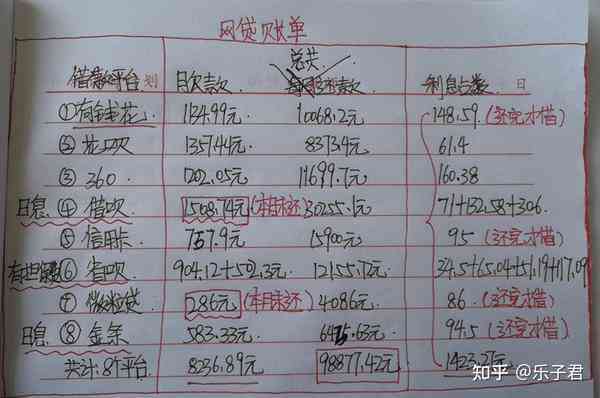 网贷账单
总共
借款平台 划 月欠款 欠款 利息总数 日
①有钱花 1134.99元 10068.2元 148.59 (还完才借)
②花呗 1357.44元 8373.4元 61.4
③360 1202.05元 11699.7元 160.38
日息 ④借呗 1508.74元(本月未还) 30255.1元 71+132.58+306
⑤信用卡 757.9元 15900元 95 (还完才借)
⑥省呗 904.12+502.3元 12155.72元 34.5+65.04+51.19+17.09
⑦微粒贷 286元(本月未还) 4086元 86 (还完才借)
日息 ⑧金条 583.33元 94.5 (还完才借)
共计:8个平台 8236.89元 98877.42元 1423.27元
知乎 @乐子君